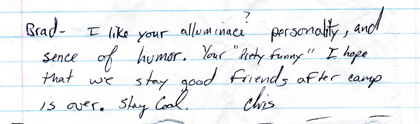 Brad- I like your alluminace? personality, and
sence of humor. Your "Piety Funny" I hope
that we stay good friends after camp
is over. Stay Cool. Chris